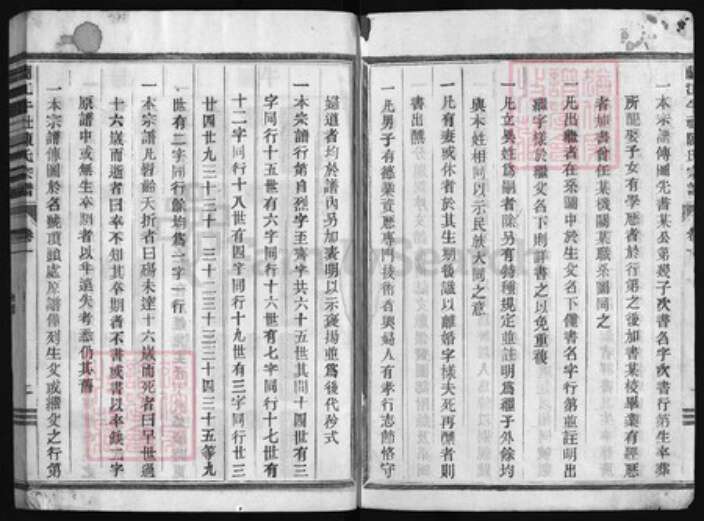 一本宗譜傳圖先書某公第幾子次書名字次書行第生卒葬
所配娶子女有學歷者於行第之後加書某校畢業有經歷
者加書曾任某機關某職系圖同之
一凡出繼者在系圖中於生父名下僅書名字行第並註明出
繼字樣於繼父名下則詳書之以免重複
一凡立異姓為嗣者除另有特種規定並註明為繼子外餘均
與本姓相同以示民族大同之意
一凡有妻或休者於其生期後識以離婚字樣夫死再醮者則
書出醮
一凡男子有德業資歷專門技術者與婦人有孝行志節恪守
婦道者均於譜內另加表明以示褒揚並為後代矜式
一本宗譜行第自烈字至齊字共六十五世其間十四世有三
字同行十五世有六字同行十六世有七字同行十七世有
十二字同行十八世有四字同行十九世有三字同行廿三
廿四廿九三十三十一三十二三十三三十四三十五等九
世有二字同行餘均為一字一行
一本宗譜凡髫齡夭折者曰殤未達十六歲而死者曰早世過
十六歲而逝者曰卒不知其卒期者不書或書以卒缺二字
原譜中或無生卒期者以年遠失考悉仍其舊
一本宗譜傳圖於名號頂頭處原譜僅列生父或繼父之行第